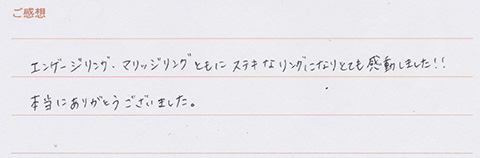 ご感想
エンゲージリング・マリッジリングともに ステキなリングになりとても感動しました!!
本当にありがとうございました。